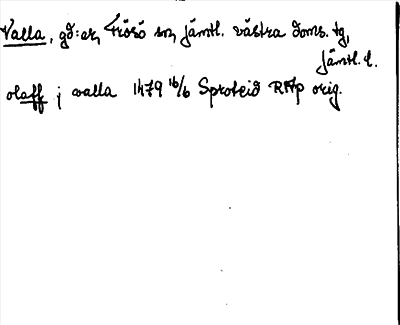 Valla, gd:ar, Frösö sn, jämtl. västra doms. tg,
jämtl. l.
olaff j walla 1479 16/6 Sproteid RAp orig.